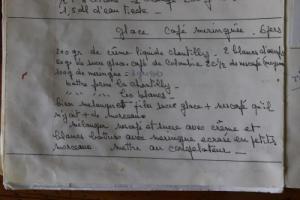 1,5 dl d'eau tiède.
Glace Café meringuée - 6 pers
200 gr de crème liquide chantilly - 2 blancs d'oeufs
80 gr de sucre glace café de Colombie 2 c/s de nescafé
100 g de meringue
battre ferme la chantilly -
" " " les blancs -
bien mélanger + fila sucre glace + nescafé qu'il
n'y ait + de morceaux
mélanger nescafé et sucre avec crème et
blancs battus avec meringue ecrasée en petits
morceaux mettre au congélateur -